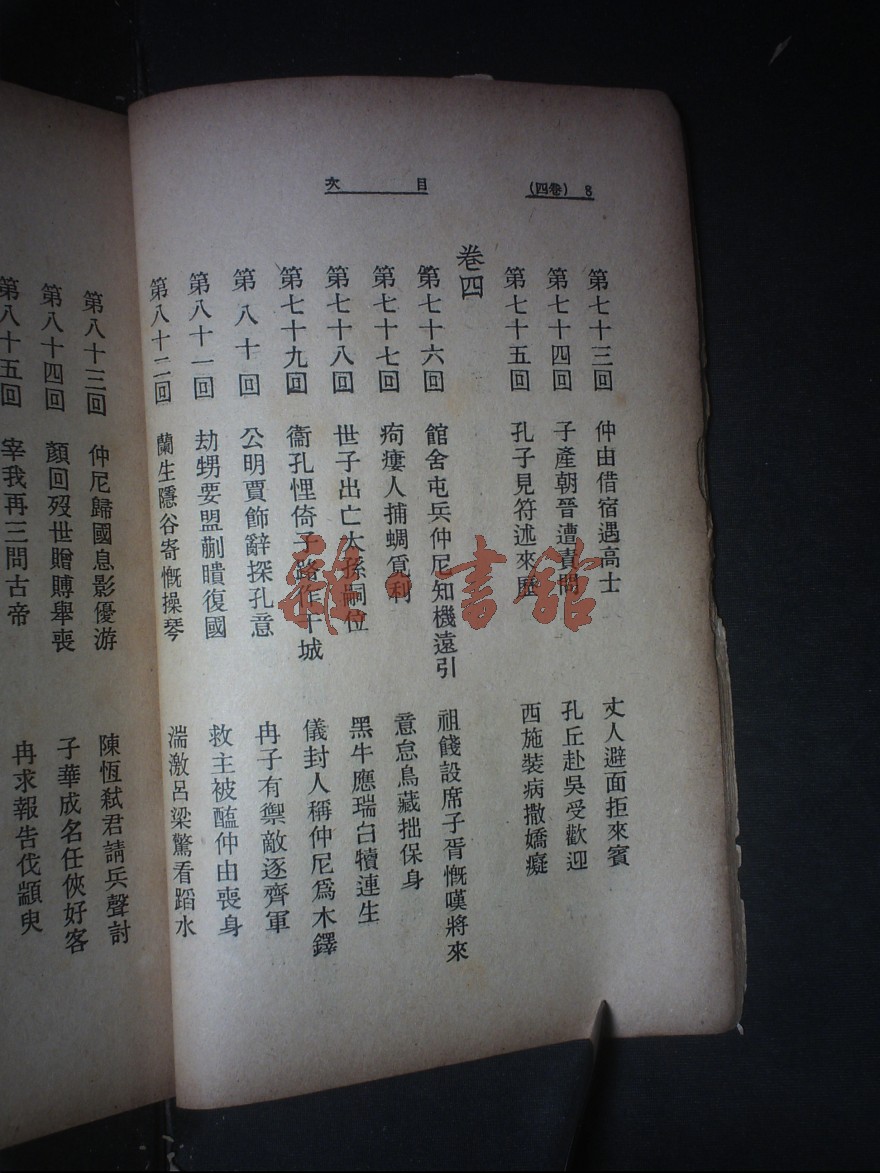 目次
8 (卷四)
第七十三回 仲由借宿遇高士 丈人避面拒來賓
第七十四回 子產朝晉遭責問 孔丘赴吳受歡迎
第七十五回 孔子見符述來歷 西施裝病撒嬌癡
卷四
第七十六回 館舍屯兵仲尼知機遠引 祖餞設席子胥慨嘆將來
第七十七回 痀瘻人捕蜩覓利 意怠鳥藏拙保身
第七十八回 世子出亡太孫嗣位 黑牛應瑞白犢連生
第七十九回 衞孔悝倚子路作干城 儀封人稱仲尼爲木鐸
第八十回 公明賈飾辭探孔意 冉子有禦敵逐齊軍
第八十一回 劫甥要盟蒯瞶復國 救主被醢仲由喪身
第八十二回 蘭生隱谷寄慨操琴 湍激呂梁驚看蹈水
第八十三回 仲尼歸國息影優游 陳恆弒君請兵聲討
第八十四回 顏回歿世贈賻舉喪 子華成名任俠好客
第八十五回 宰我再三問古帝 冉求報告伐顓臾
雜·書館